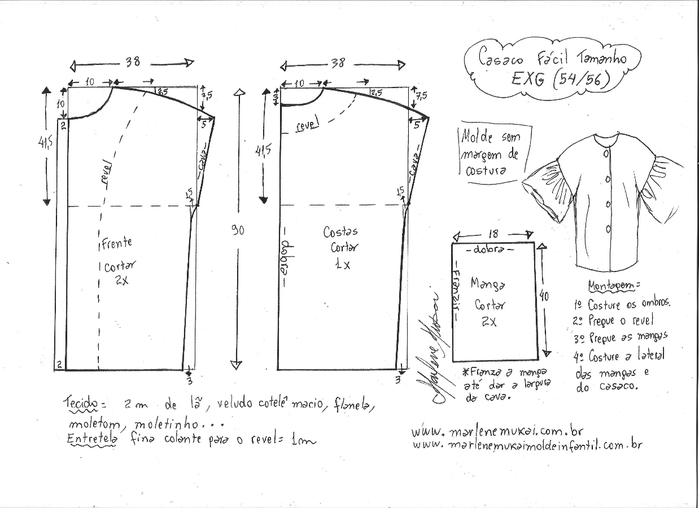 Casaco Fácil Tamanho
EXG (54/56)
Molde sem
margem de
costura
38
10
8,5
7,5
10
2
5
41,5
revel
cava
1,5
Frente
Cortar
2X
2
3
90
38
10
7,5
5
41,5
revel
cava
1,5
Costas
Cortar
1X
dobra
3
18
dobra
Franzir
Manga
Cortar
2X
40
*Franza a manga
até dar a largura
da cava.
Marlene Mukai
Montagem=
1º Costure os ombros.
2º Pregue o revel
3º Pregue as mangas
4º Costure a lateral
das mangas e
do casaco.
Tecido= 2m de lã, veludo cotelê macio, flanela,
moletom, moletinho...
Entretela fina colante para o revel= 1m
www.marlenemukai.com.br
www.marlenemukaimoldeinfantil.com.br